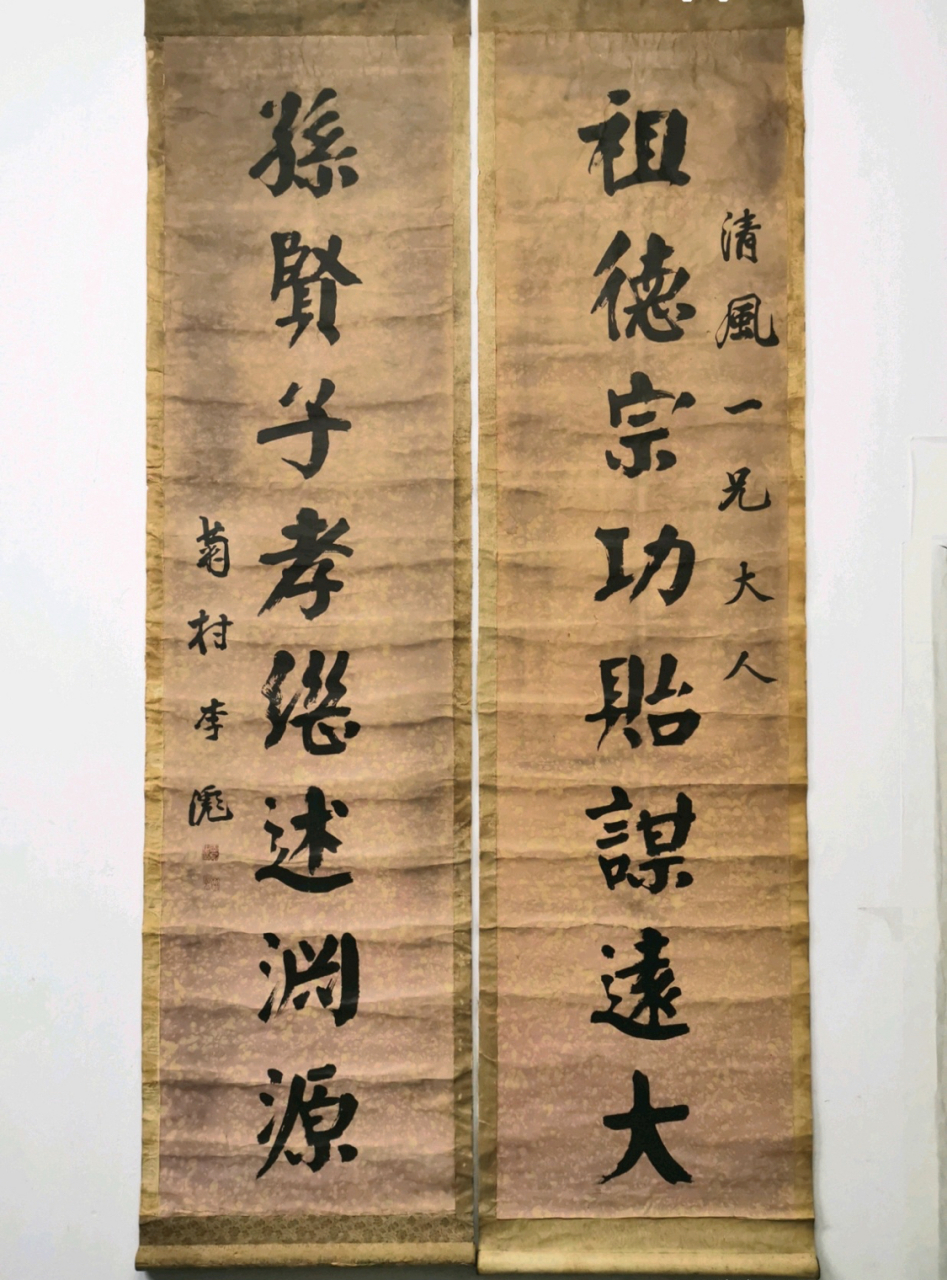 清風一兄大人
祖德宗功貽謀遠大
孫賢子孝繼述淵源
菊村李滮